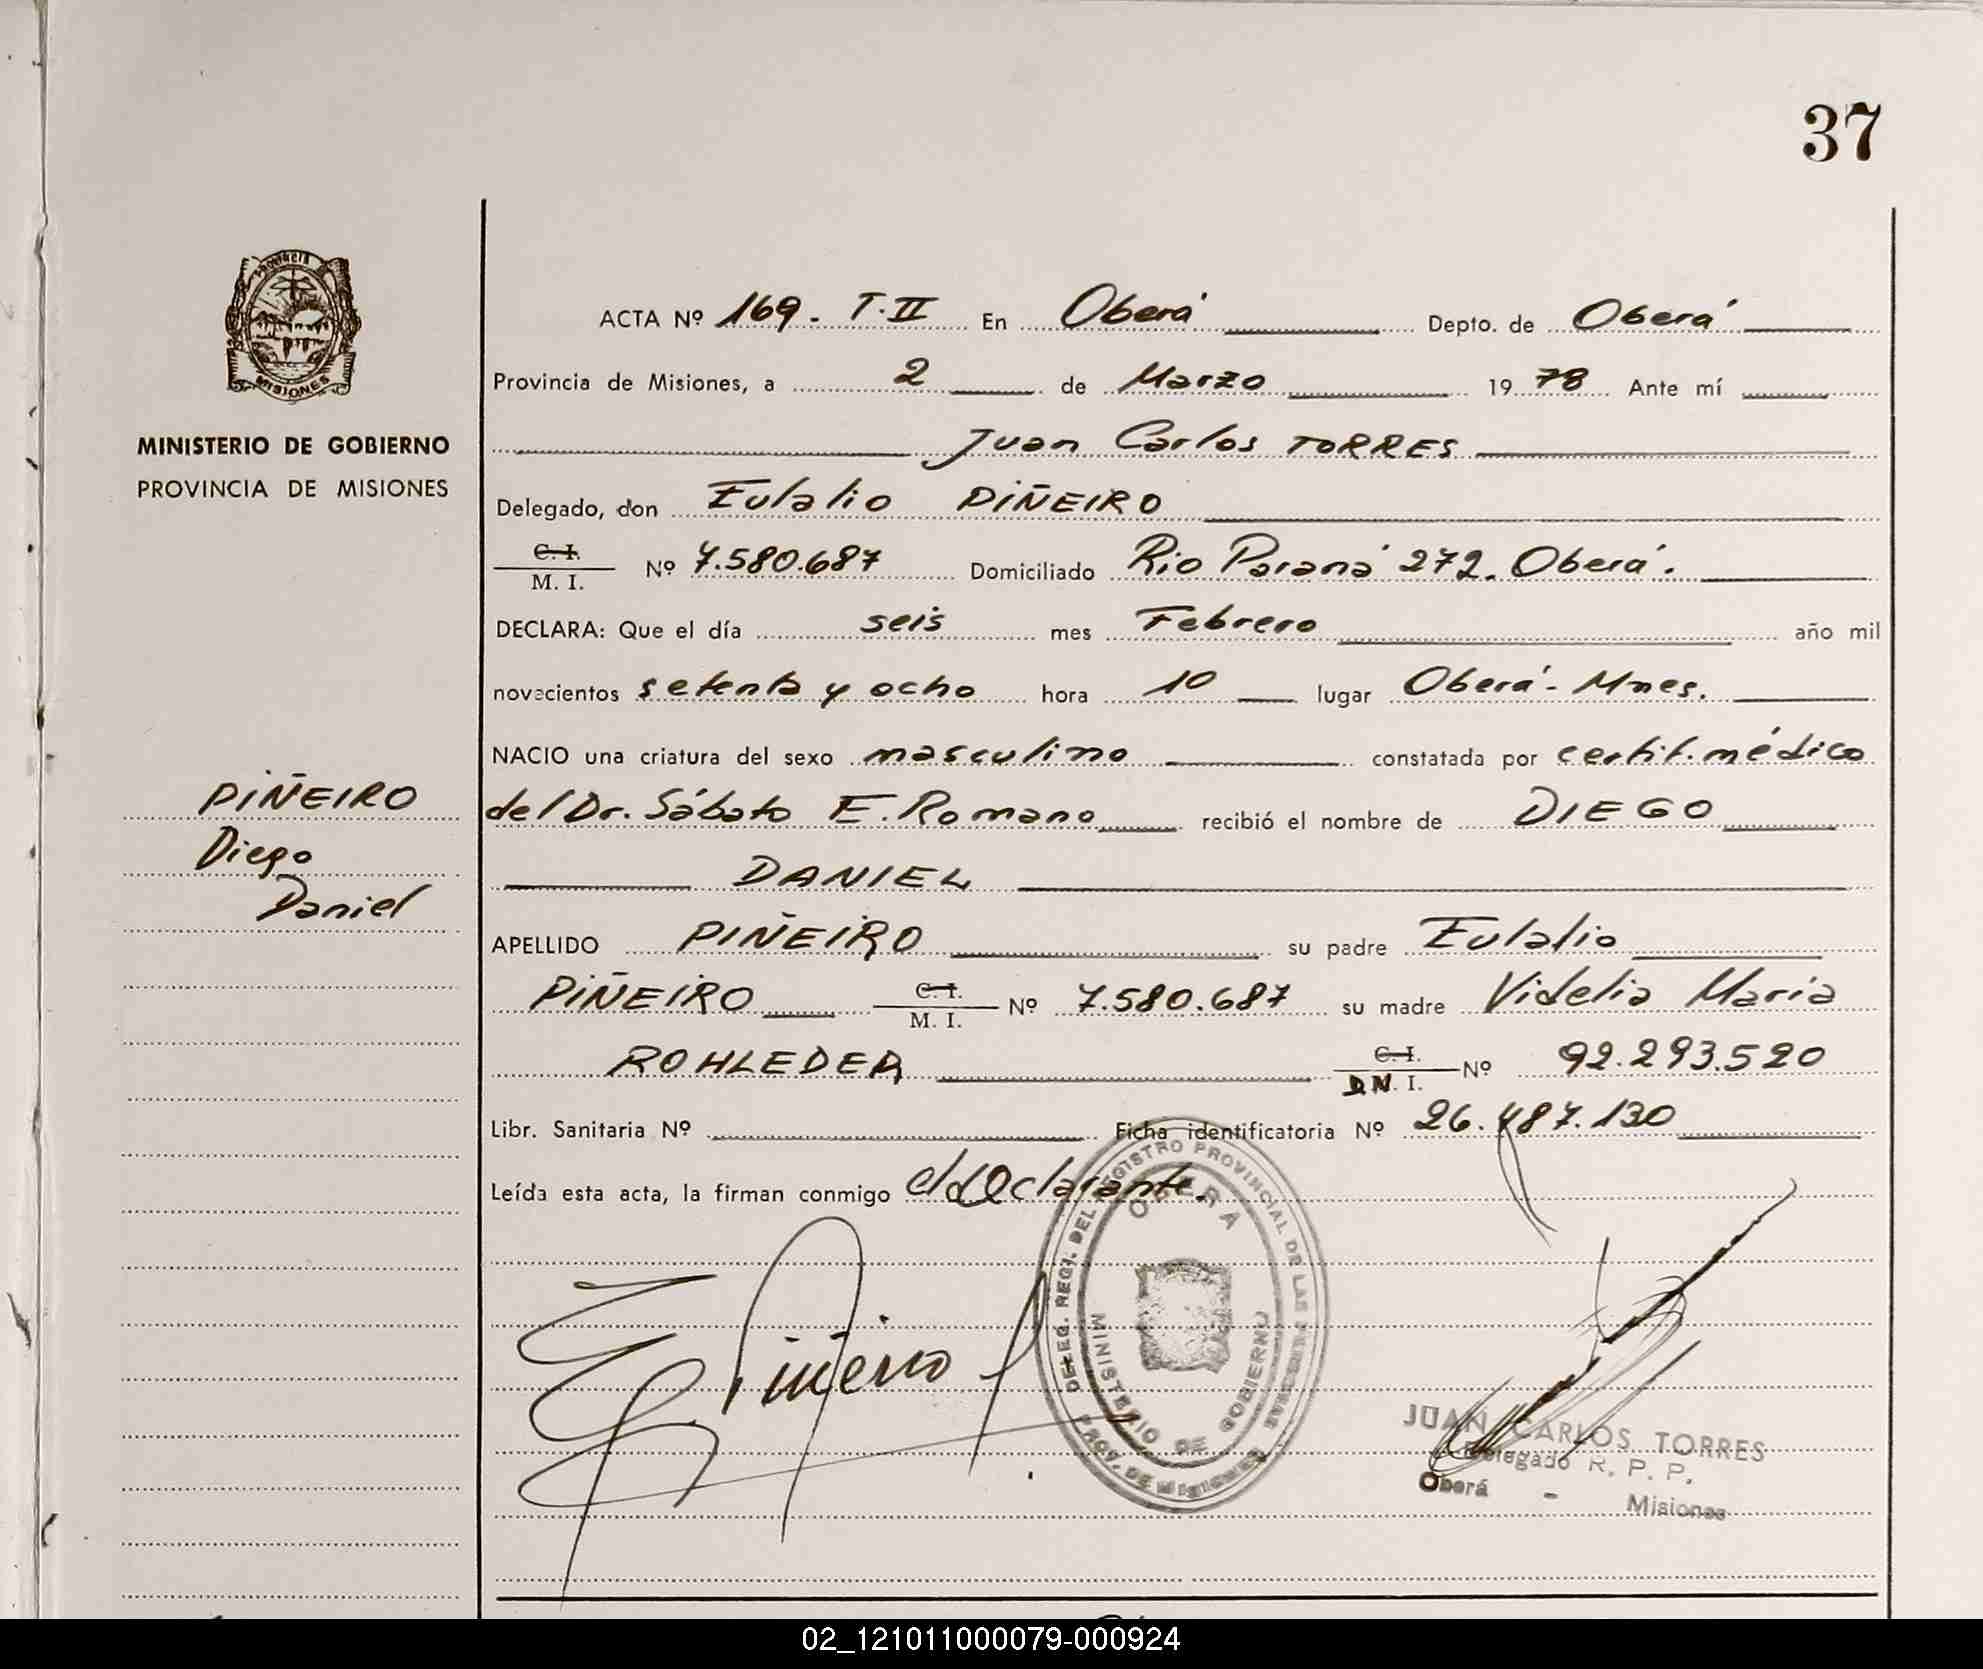 37
PROVINCIA
MISIONES
MINISTERIO DE GOBIERNO
PROVINCIA DE MISIONES
PIÑEIRO
Diego
Daniel
ACTA Nº 169. T. II En Oberá Depto. de Oberá
Provincia de Misiones, a 2 de Marzo 19 78 Ante mí
Juan Carlos TORRES
Delegado, don Eulalio PIÑEIRO
C. I.
M. I. Nº 7.580.687 Domiciliado Rio Paraná 272. Oberá.
DECLARA: Que el día seis mes Febrero año mil
novecientos setenta y ocho hora 10 lugar Oberá - Mnes.
NACIO una criatura del sexo masculino constatada por certif. médico
del Dr. Sábato E. Romano recibió el nombre de DIEGO
DANIEL
APELLIDO PIÑEIRO su padre Eulalio
PIÑEIRO C. I.
M. I. Nº 7.580.687 su madre Videlia María
ROHLEDER C. I.
D.N. I. Nº 92.293.520
Libr. Sanitaria Nº Ficha identificatoria Nº 26.487.130
Leída esta acta, la firman conmigo el declarante.
DELEG. REGI. DEL REGISTRO PROVINCIAL DE LAS PERSONAS
OBERÁ
MINISTERIO DE GOBIERNO
PROV. DE MISIONES
E Piñeiro
JUAN CARLOS TORRES
Delegado R. P. P.
Oberá - Misiones
02_121011000079-000924